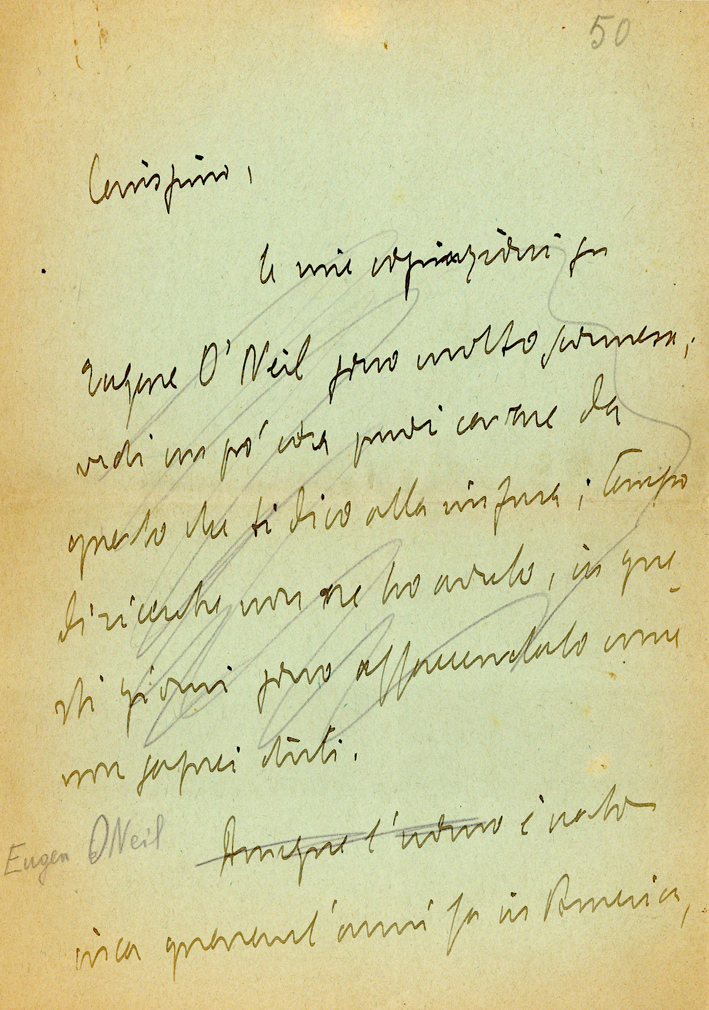 50
Carissimo,
le mie cognizioni su
Eugene O' Neil sono molto sommarie;
vedi un po' cosa puoi cavare da
questo che ti dico alla rinfusa; tempo
di ricerche non ne ho avuto, in que
sti giorni sono affaccendato come
non saprei dirti.
Eugen ONeil
Dunque l'uomo è nato
circa quarant'anni fa in America,